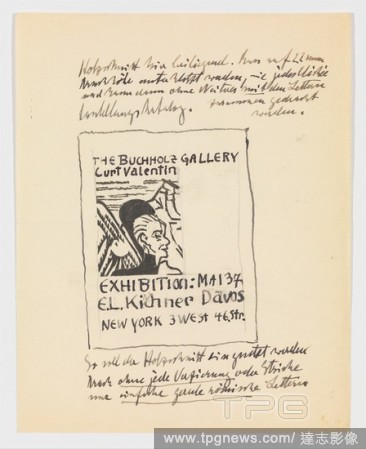 Holzschnitt hier beiliegend. Muss auf
werden, wie jedes Cliché
und kann dann ohne Weiteres mit den Lettern
zusammen gedruckt
werden.
THE BUCHHOLZ GALLERY
Curt Valentin
EXHIBITION: MAI 37
E.L. Kirchner Davos
NEW YORK 3 WEST 46. Str.
So soll der Holzschnitt eingesetzt werden
ohne jede Verzierung oder Striche
nur einfache gerade römische Lettern
TPG
www.tpgnews.com/達志影像